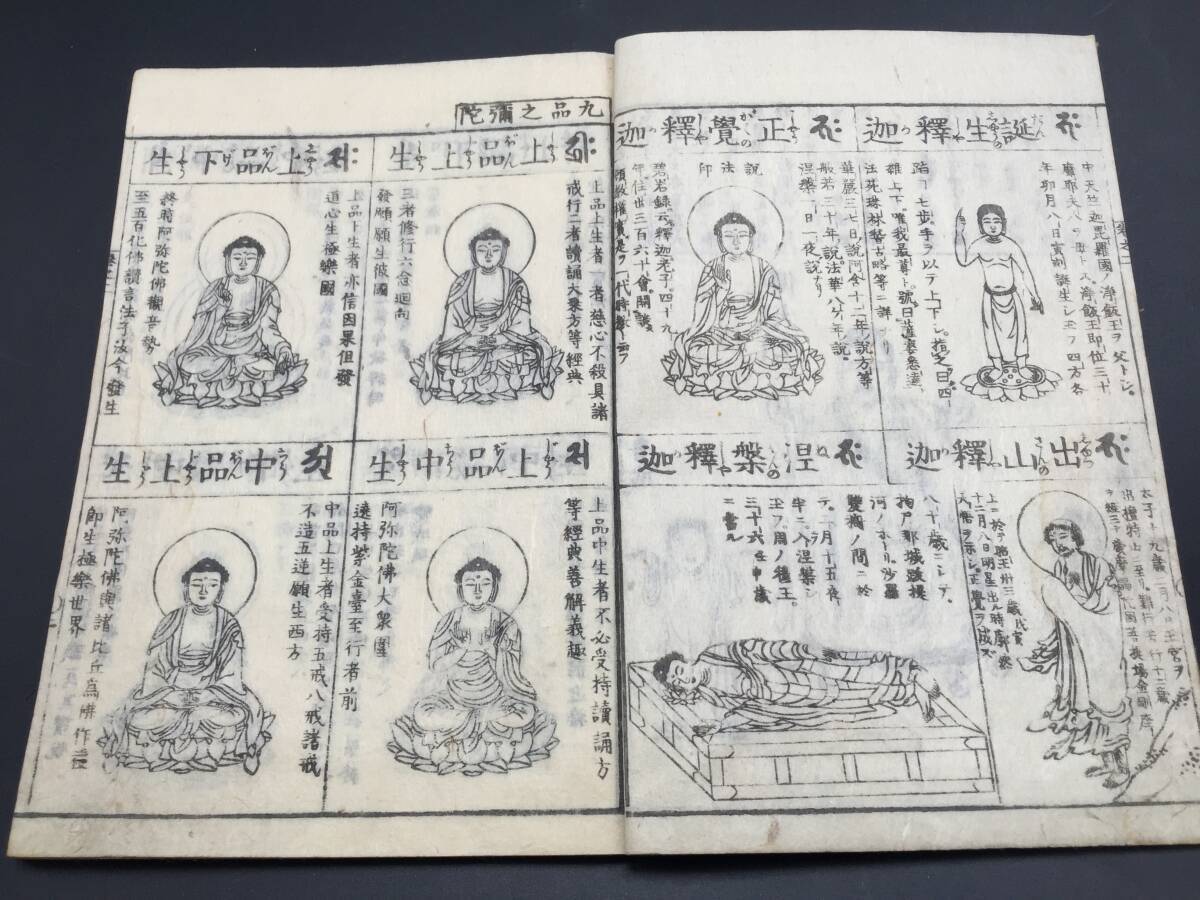 誕生釋迦
中天竺迦毘羅國ノ淨飯王ヲ父トシ。
摩耶夫人ヲ母トス。淨飯王即位三十
年卯月八日寅刻誕生シ玉フ四方各
蹈ヿ七歩手ヲ以テ上下シ。指之曰。四
維上下。唯我最尊ト。號曰
法苑珠林替古略等ニ詳ナリ
出山釋迦
太子十九歳二月八日王宮ヲ
出檀特山ニ至リ。難行苦行十二歳
十二月八日明星出ル時廓然
大悟ヲ示シ。正覺ヲ成ズ
正覺釋迦
華嚴三七日。説阿含十二年説方等
般若三十年。説法華八ケ年説。
涅槃一日一夜説ナリ
説法印
碧岩録云。釋迦老子。四十九
年住世三百六十會。開談
頓漸權實是ヲ一代時教ト云フ
涅槃釋迦
八十歳ニシテ。
拘尸那城跋提
河ノホトリ。沙羅
雙樹ノ間ニ於
テ。二月十五夜
半ニ入涅槃シ
玉フ。周ノ穆王。
三十六壬申歳
ニ當ル
九品之彌陀
上品上生
上品上生者一者慈心不殺具諸
戒行二者讀誦大乗方等經典
三者修行六念迴向
發願願生彼國
上品中生
上品中生者不必受持讀誦方
等經典善解義趣
阿弥陀佛大衆圍
遶持紫金臺至行者前
上品下生
上品下生者亦信因果但發
道心生極樂國
終時阿弥陀佛觀音勢
至五百化佛讃言法子汝今發生
中品上生
中品上生者受持五戒八戒諸戒
不造五逆願生西方
阿弥陀佛與諸比丘為
即生極樂世界